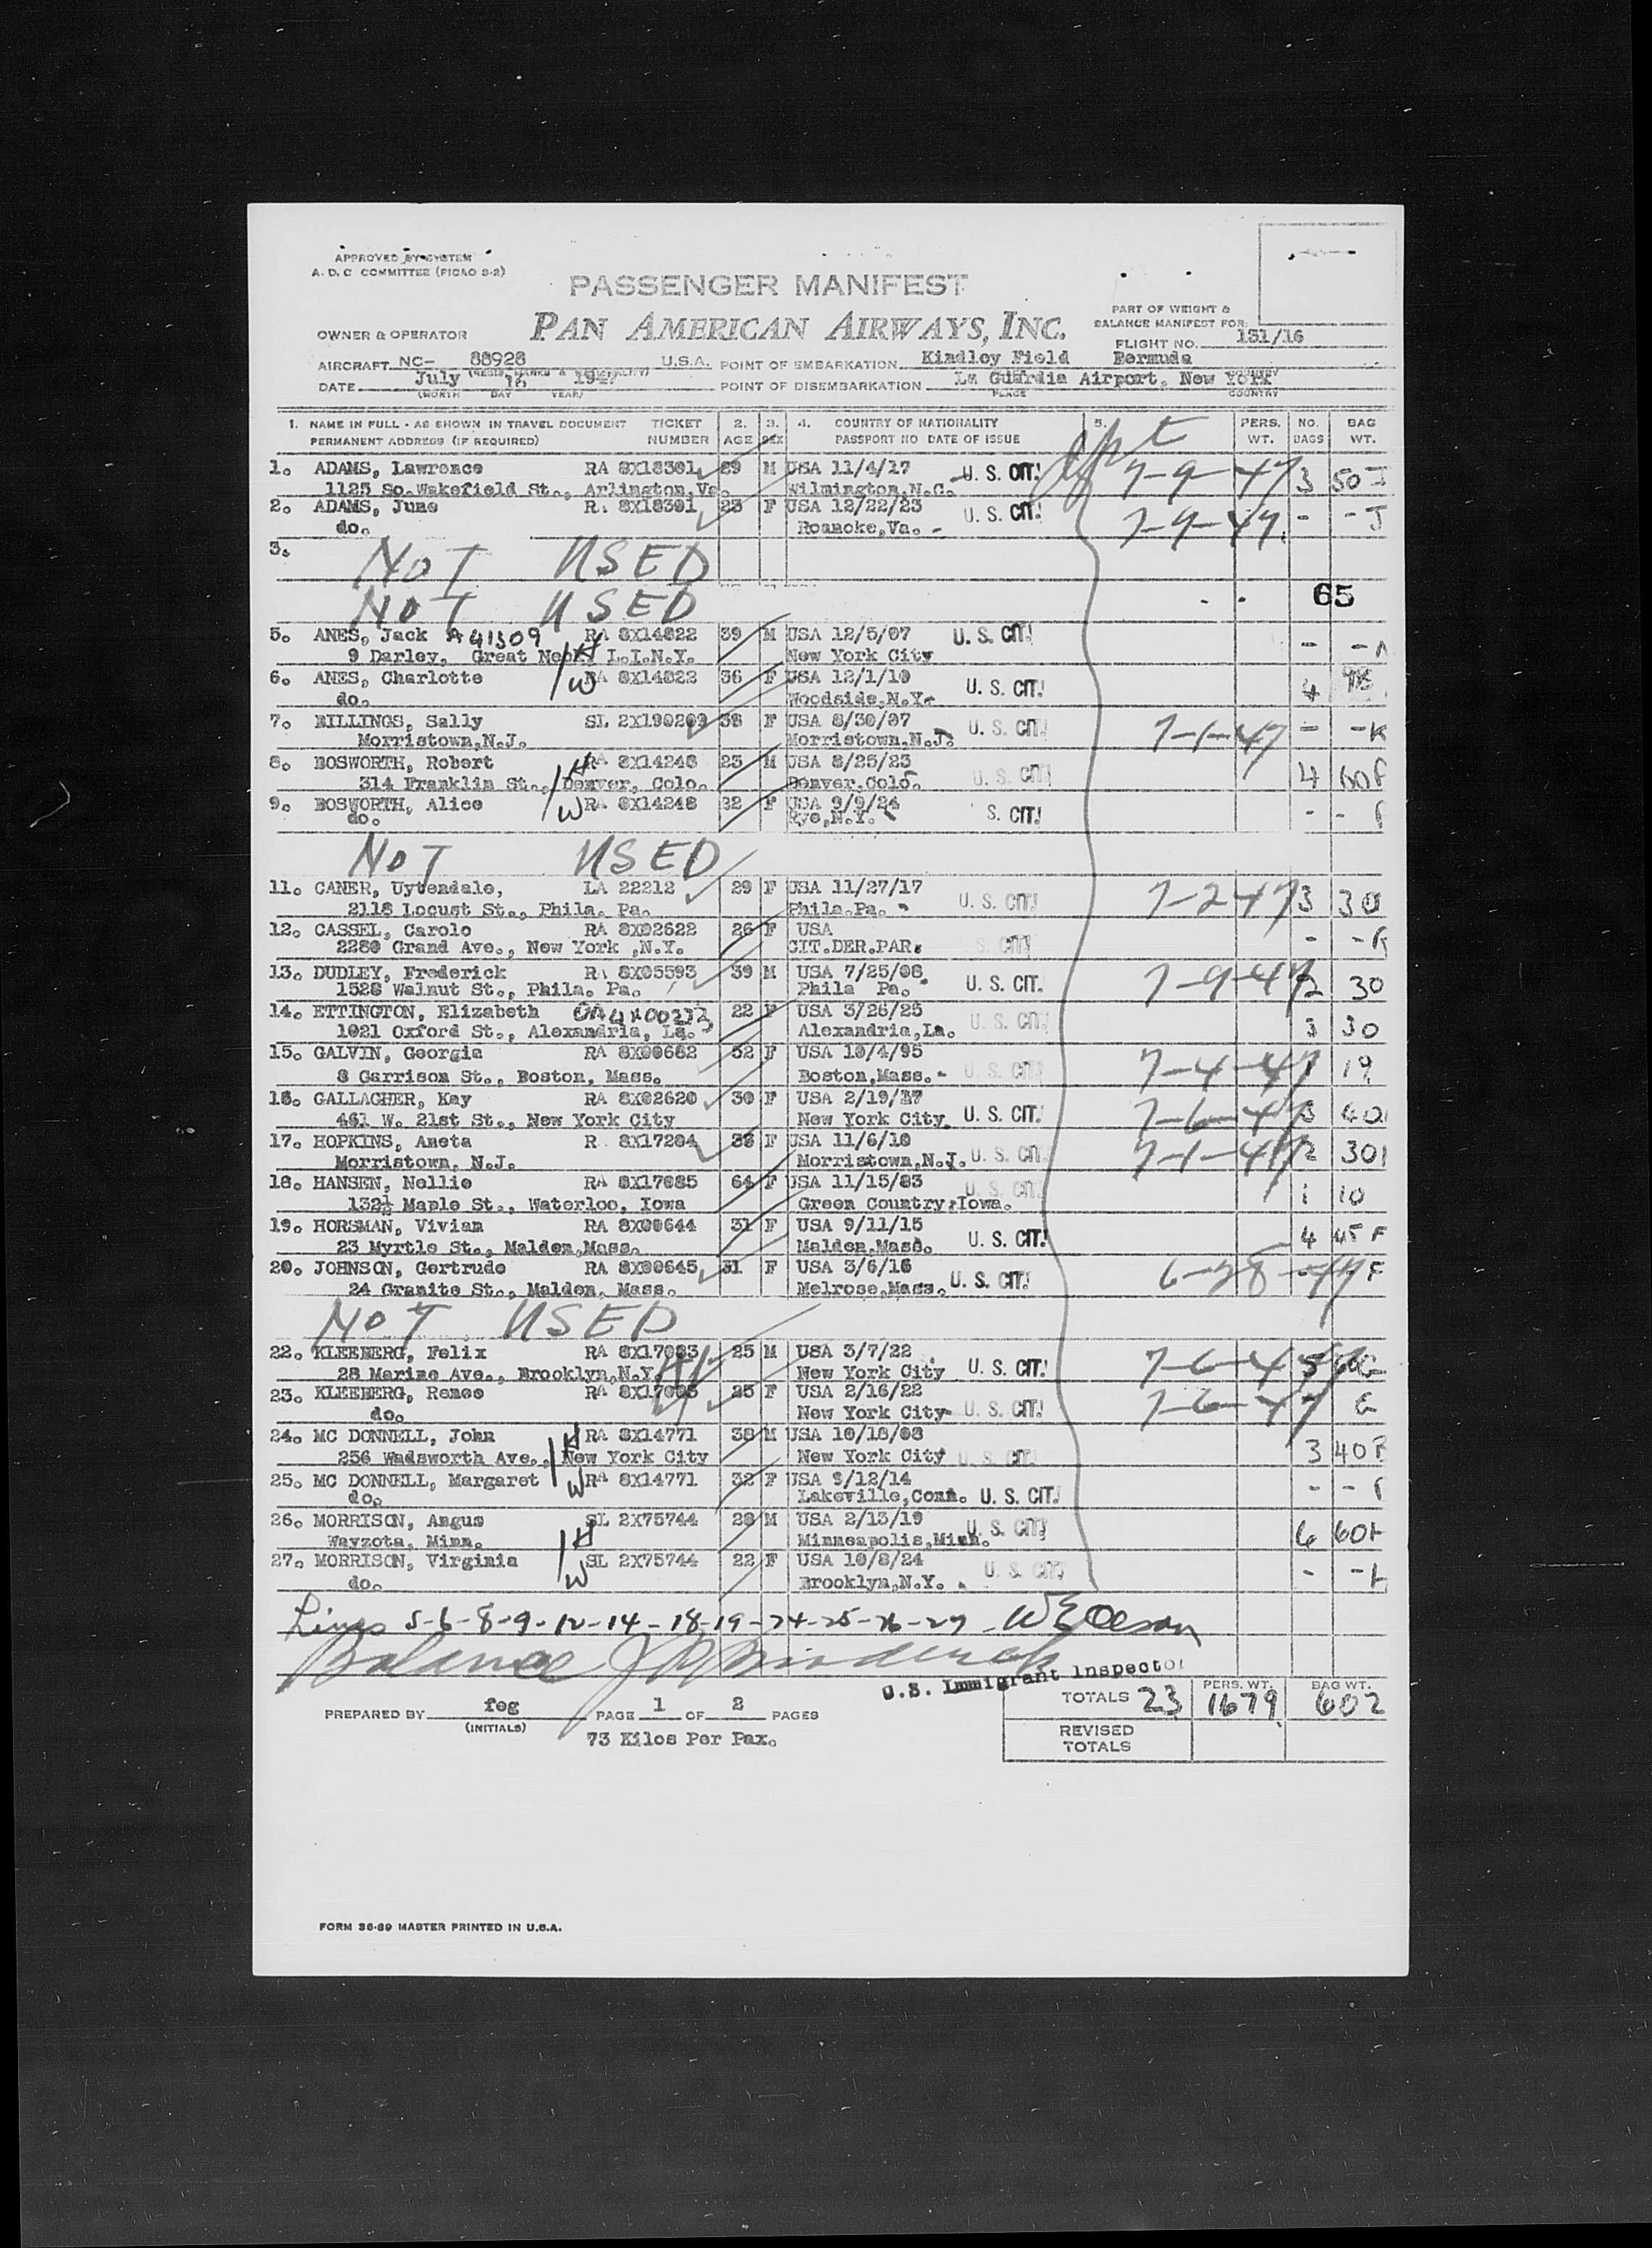 APPROVED BY SYSTEM
A. D. C COMMITTEE (PICAO 3-2)
PASSENGER MANIFEST
PAN AMERICAN AIRWAYS, INC.
PART OF WEIGHT &
BALANCE MANIFEST FOR:
OWNER & OPERATOR
FLIGHT NO. 131/16
AIRCRAFT NC- 88928 U.S.A. POINT OF EMBARKATION Kindley Field Bermuda
DATE July 16 1947 POINT OF DISEMBARKATION La Guardia Airport, New York
(MONTH DAY YEAR) PLACE COUNTRY
1. NAME IN FULL - AS SHOWN IN TRAVEL DOCUMENT TICKET 2. 3. 4. COUNTRY OF NATIONALITY 5. PERS. NO. BAG
PERMANENT ADDRESS (IF REQUIRED) NUMBER AGE SEX PASSPORT NO DATE OF ISSUE WT. BAGS WT.
1. ADAMS, Lawrence RA 8X18391 29 M USA 11/4/17 U. S. CIT. 7-9-47 3 50 J
1125 So. Wakefield St., Arlington, Va. Wilmington, N.C.
2. ADAMS, June RA 8X18391 23 F USA 12/22/23 U. S. CIT. 7-9-47 - - J
do. Roanoke, Va.
3. NOT USED
NOT USED 65
5. ANES, Jack A41309 RA 8X14822 39 M USA 12/5/07 U. S. CIT. - -
9 Darley, Great Neck, L.I.N.Y. H New York City
6. ANES, Charlotte RA 8X14822 36 F USA 12/1/10 U. S. CIT. 4
do. W Woodside, N.Y.
7. BILLINGS, Sally SL 2X190209 38 F USA 8/30/07 U. S. CIT. 7-1-47 - - K
Morristown, N.J. Morristown, N.J.
8. BOSWORTH, Robert H RA 8X14248 23 M USA 8/25/23 U. S. CIT. 4 60 F
314 Franklin St., Denver, Colo. Denver, Colo.
9. BOSWORTH, Alice W RA 8X14248 32 F USA 9/9/24 S. CIT. - -
do. Rye, N.Y.
NOT USED
11. CANER, Uytendale, LA 22212 29 F USA 11/27/17 U. S. CIT. 7-2-47 3 30
2118 Locust St., Phila. Pa. Phila. Pa.
12. CASSEL, Carole RA 8X02622 26 F USA S. CIT. - -
2280 Grand Ave., New York ,N.Y. CIT.DER.PAR.
13. DUDLEY, Frederick RA 8X05593 39 M USA 7/25/08 U. S. CIT. 7-9-47 2 30
1528 Walnut St., Phila. Pa. Phila Pa.
14. ETTINGTON, Elizabeth 22 F USA 3/26/25 U. S. CIT. 3 30
1021 Oxford St., Alexandria, La. Alexandria, La.
15. GALVIN, Georgia RA 8X00662 52 F USA 10/4/95 U. S. CIT. 7-4-47 19
8 Garrison St., Boston, Mass. Boston, Mass.
16. GALLAGHER, Kay RA 8X02620 30 F USA 2/19/17 7-6-47 3 40
461 W. 21st St., New York City New York City U. S. CIT.
17. HOPKINS, Aneta R 8X17204 36 F USA 11/6/10 7-1-47 2 30
Morristown, N.J. Morristown, N.J. U. S. CIT.
18. HANSEN, Nellie RA 8X17685 64 F USA 11/15/83 U. S. CIT. 1 10
132½ Maple St., Waterloo, Iowa Green Country, Iowa.
19. HORSMAN, Vivian RA 8X00644 31 F USA 9/11/15 U. S. CIT. 4 45 F
23 Myrtle St., Malden, Mass. Malden, Mass.
20. JOHNSON, Gertrude RA 8X00645 31 F USA 3/6/16 6-28-47 F
24 Granite St., Malden, Mass. Melrose, Mass. U. S. CIT.
NOT USED
22. KLEEBERG, Felix RA 8X17093 25 M USA 3/7/22 U. S. CIT. 7-6-47 5
28 Marine Ave., Brooklyn, N.Y. New York City
23. KLEEBERG, Renee RA 8X17093 25 F USA 2/16/22 7-6-47
do. New York City U. S. CIT.
24. MC DONNELL, John H RA 8X14771 38 M USA 10/18/08 3 40 F
256 Wadsworth Ave., New York City New York City U. S. CIT.
25. MC DONNELL, Margaret W RA 8X14771 32 F USA 9/12/14 - -
do. Lakeville, Conn. U. S. CIT.
26. MORRISON, Angus H SL 2X75744 28 M USA 2/13/19 U. S. CIT. 6 60 H
Wayzota, Minn. Minneapolis, Minn.
27. MORRISON, Virginia W SL 2X75744 22 F USA 10/8/24 U. S. CIT. - - H
do. Brooklyn, N.Y.
Lines 5-6-8-9-12-14-18-19-24-25-26-27 - W E Oleson
Balance
U.S. Immigrant Inspector
PERS. WT. BAG WT.
TOTALS 23 1679 602
PREPARED BY feg PAGE 1 OF 2 PAGES
(INITIALS)
REVISED
TOTALS
73 Kilos Per Pax.
FORM 36-89 MASTER PRINTED IN U.S.A.